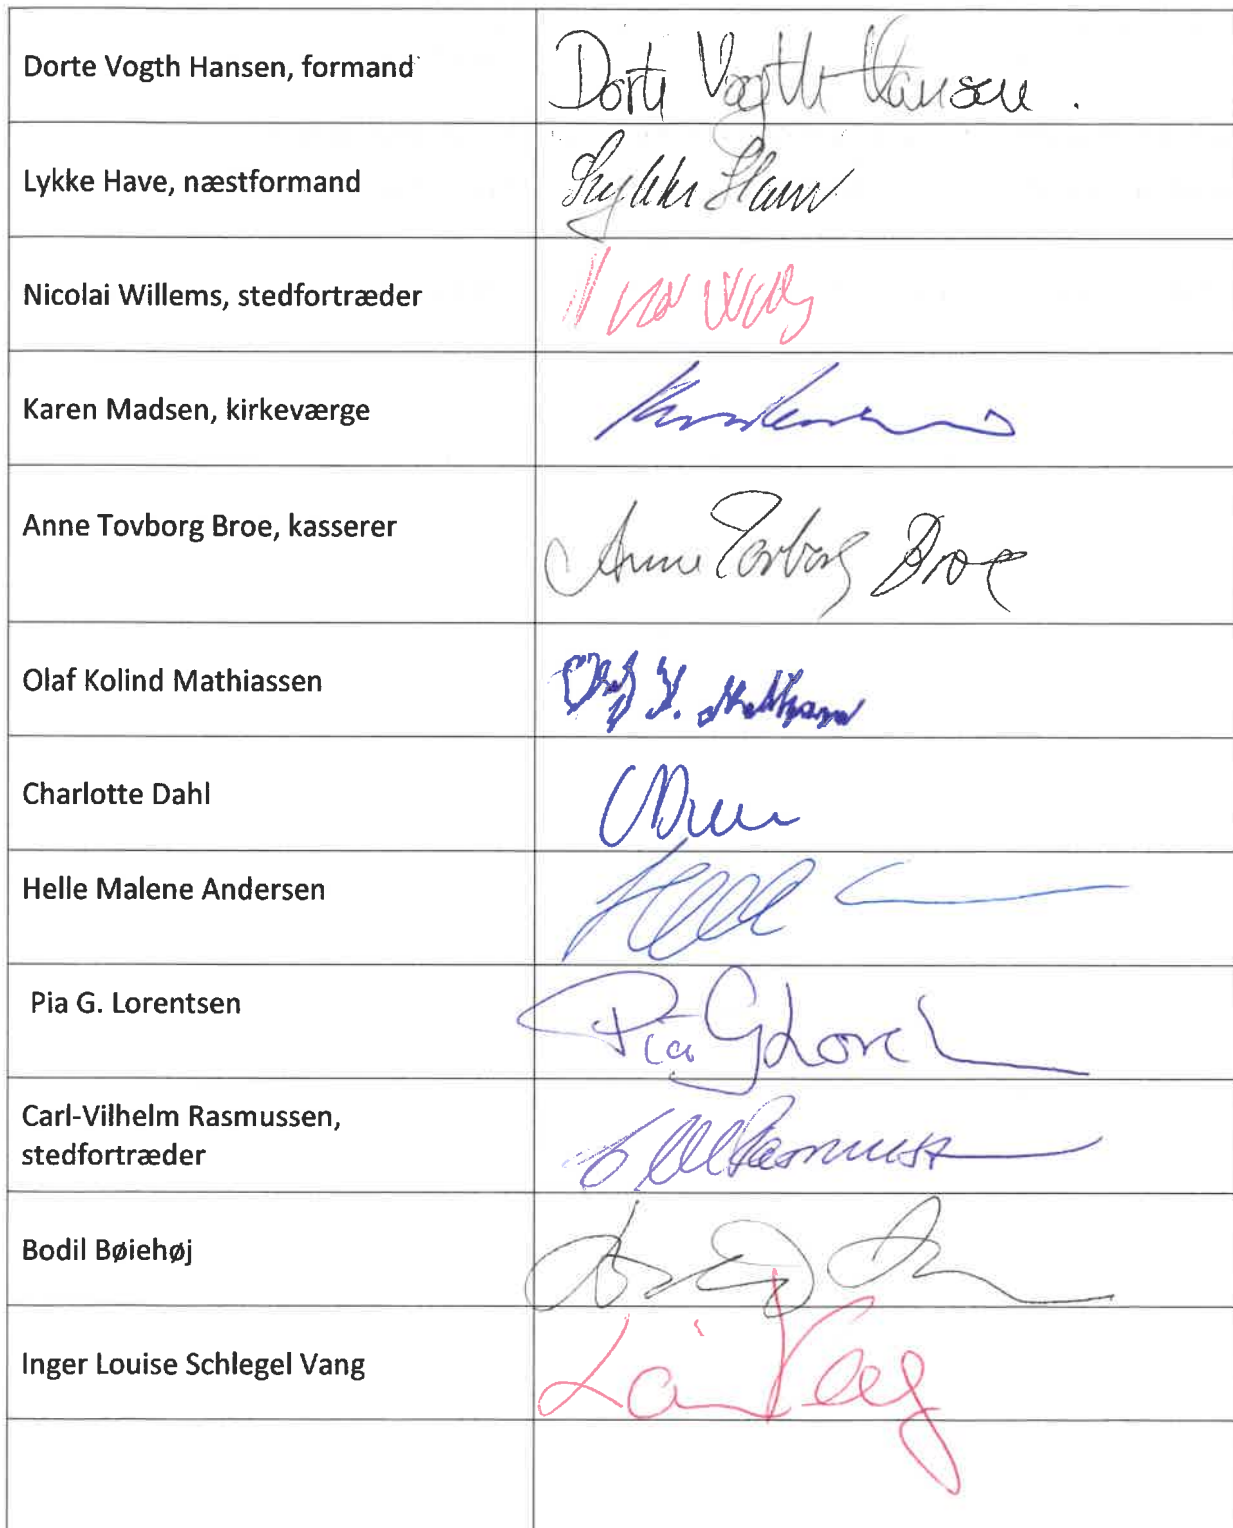 Dorte Vogth Hansen, formand
Dorte Vogth Hansen.
Lykke Have, næstformand
Lykke Have
Nicolai Willems, stedfortræder
Karen Madsen, kirkeværge
Anne Tovborg Broe, kasserer
Anne Tovborg Broe
Olaf Kolind Mathiassen
Charlotte Dahl
Helle Malene Andersen
Helle
Pia G. Lorentsen
Pia G Lore
Carl-Vilhelm Rasmussen,
stedfortræder
Bodil Bøiehøj
Inger Louise Schlegel Vang